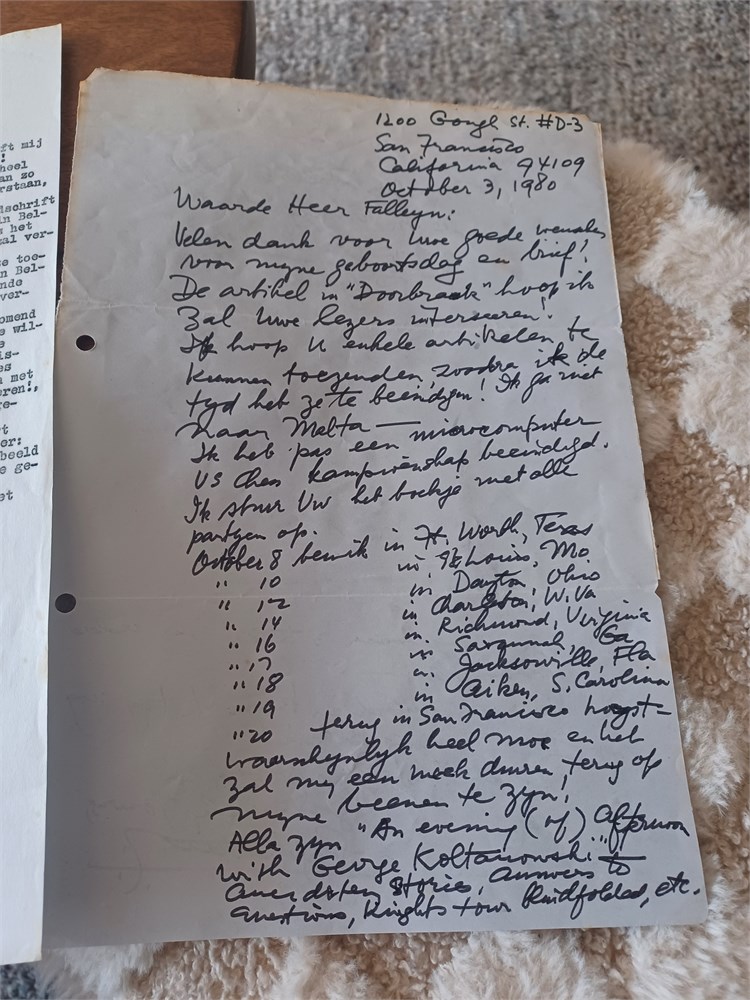 ft mij
!
heel
an zo
rstaan,
dschrift
in Bel-
s het
al ver-
te toe-
n Bel-
nde
ver-
omend
e wil-
e
is-
es
n met
ren!,
ge-
t
er:
beeld
e ge-
et
1200 Gough St. #D-3
San Francisco
California 94109
October 3, 1980
Waarde Heer Falleyn:
Velen dank voor Uwe goede wensen
voor myne geboortsdag en brief!
De artikel in "Doorbraak" hoop ik
zal Uwe lezers interseren!
Ik hoop U enkele artikelen te
kunnen toezenden, zoodra ik de
tyd heb ze te beeindigen! Ik ga niet
naar Malta —
Ik heb pas een microcomputer
US Chess kampioenschap beeindigd.
Ik stuur Uw het boekje met alle
partyen op.
October 8 ben ik in Ft. Worth, Texas
" 10 in St Louis, Mo
" 12 in Dayton, Ohio
" 14 in Charleston, W. Va
" 16 in Richmond, Virginia
" 17 in Savannah, Ga
" 18 in Jacksonville, Fla
" 19 in Aiken, S. Carolina
" 20 terug in San Francisco hoogst-
waarshynlyk heel moe en het
zal my een week duren terug op
myne beenen te zyn!
Alla zyn "An evening (of) afternoon
with George Koltanowski"
Stories, answers to
questions, Knights tour Blindfolded, etc.